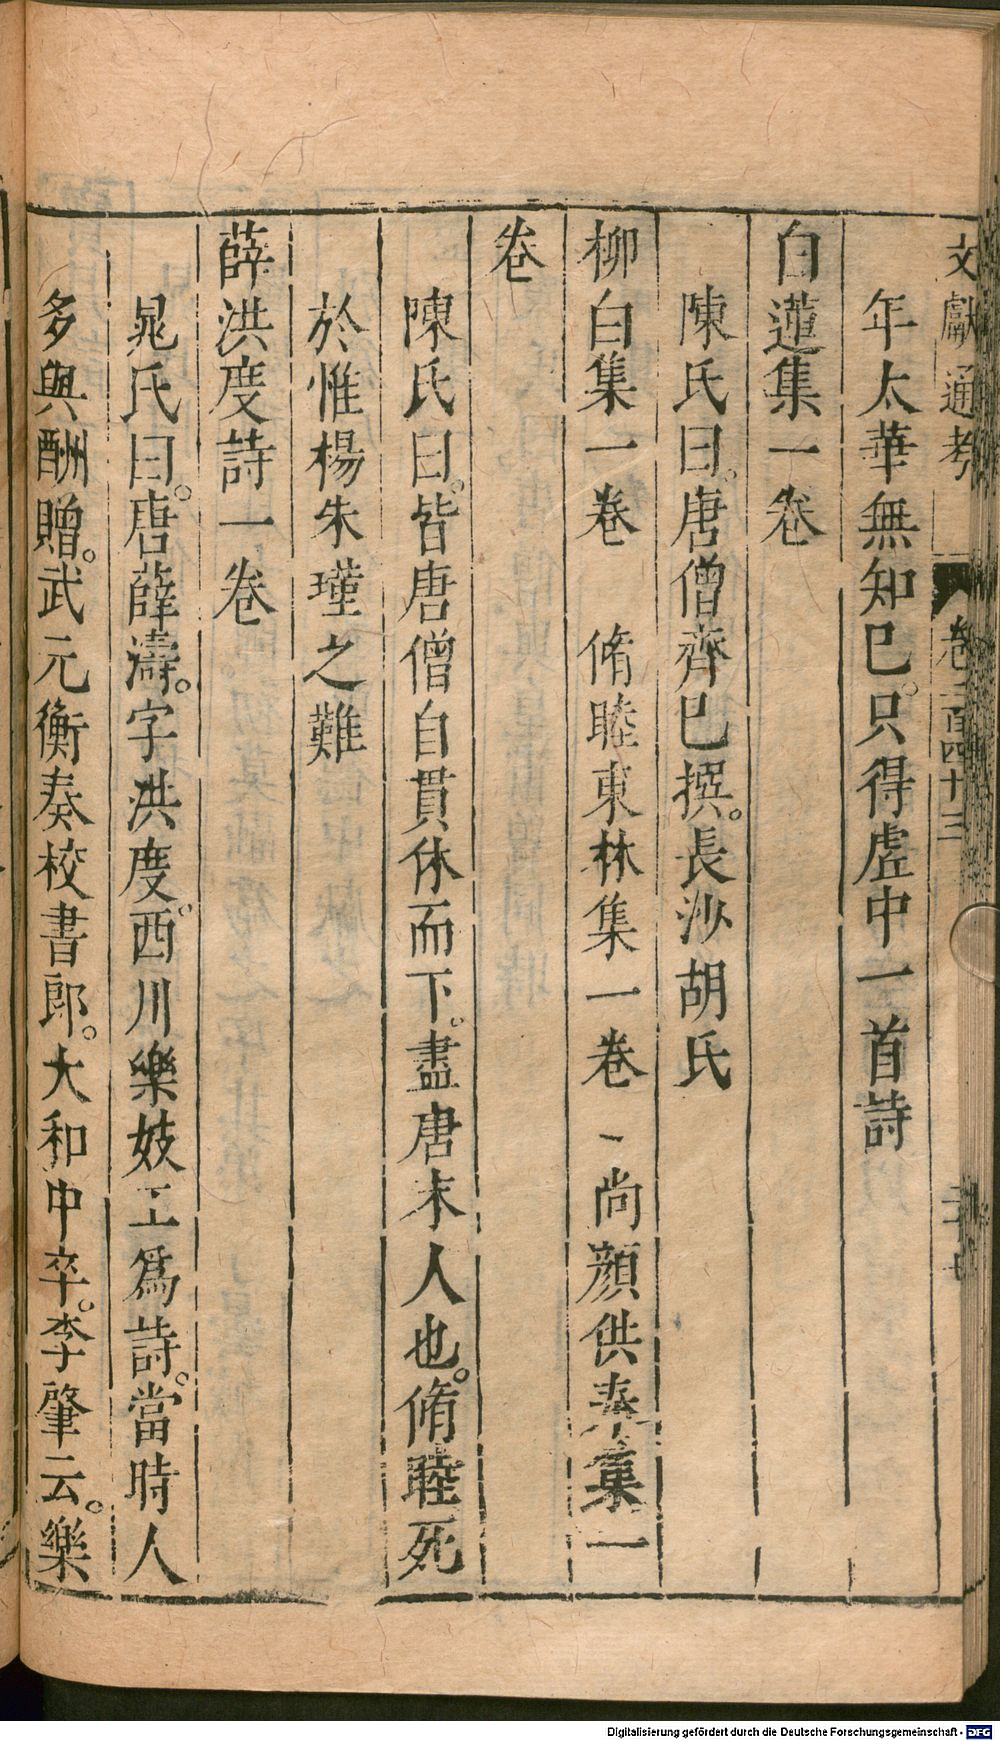 文獻通考 卷二百四十三 二十七
年太華無知巳。只得虛中一首詩
白蓮集一卷
陳氏曰。唐僧齊巳撰。長沙胡氏
柳白集一卷 脩睦東林集一卷 尚顔供奉集一
卷
陳氏曰。皆唐僧自貫休而下。盡唐末人也。脩睦死
於惟楊朱瑾之難
薛洪度詩一卷
晁氏曰。唐薛濤。字洪度。西川樂妓工爲詩。當時人
多與酬贈。武元衡奏校書郎。大和中卒。李肇云。樂
Digitalisierung gefördert durch die Deutsche Forschungsgemeinschaft - DFG